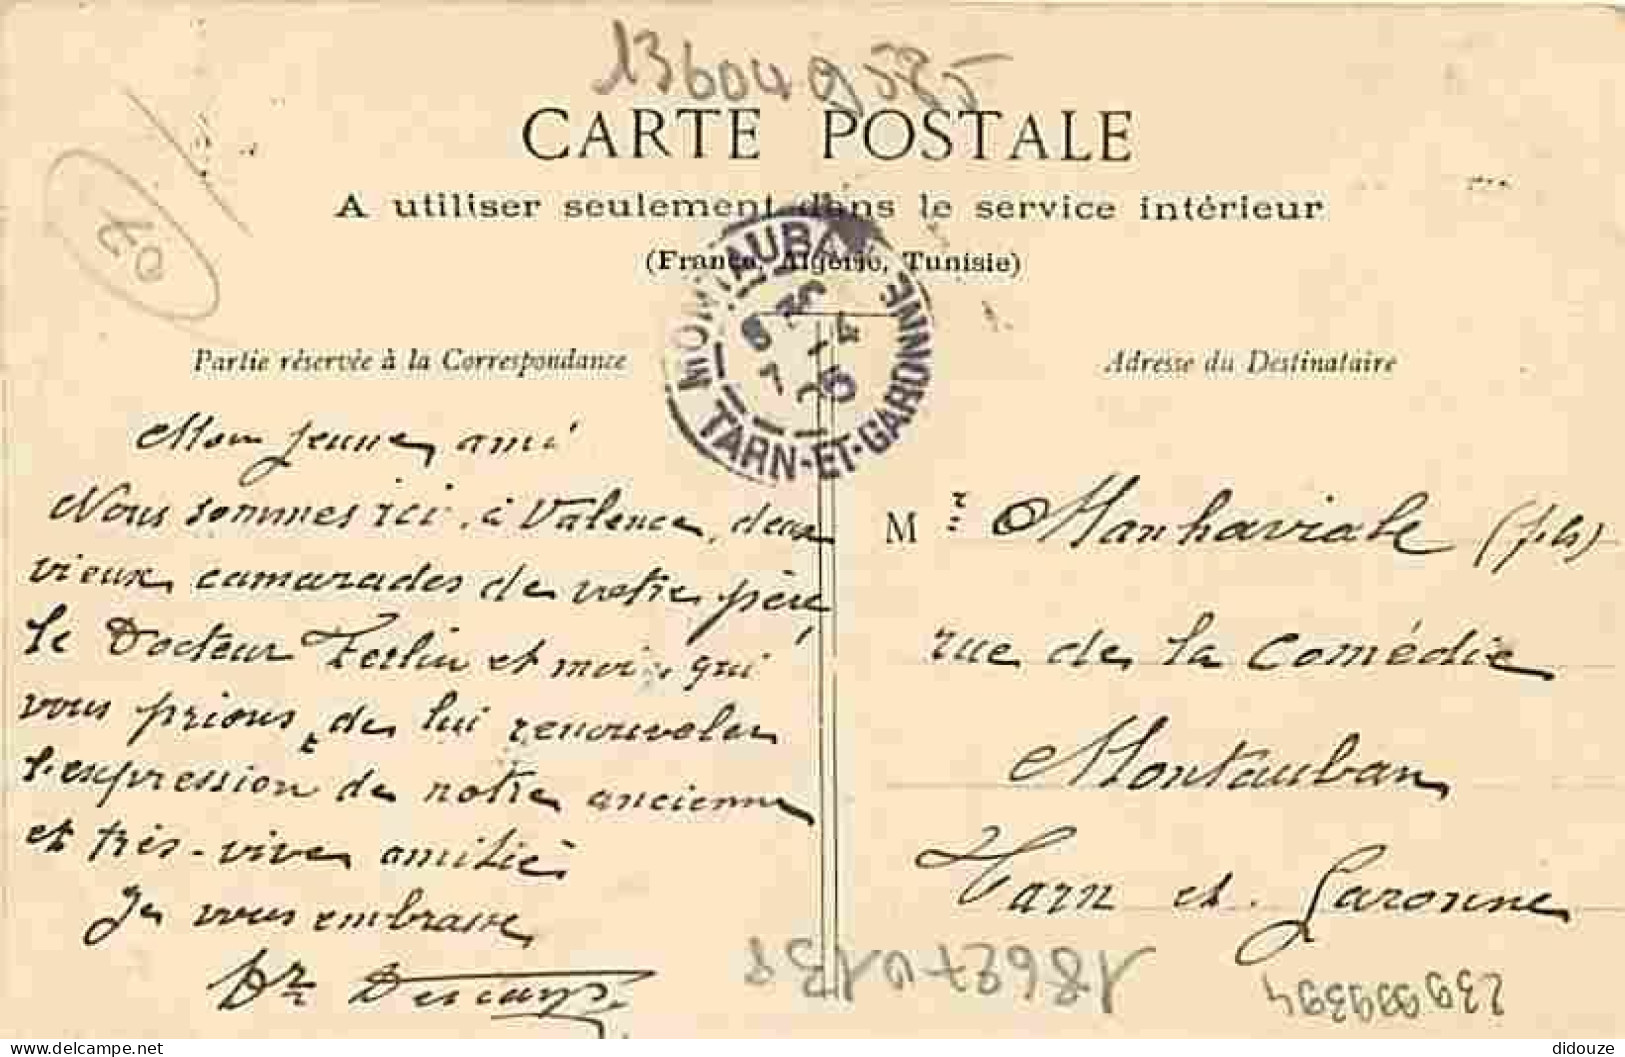 1360409585
CARTE POSTALE
A utiliser seulement dans le service intérieur
(France, Algérie, Tunisie)
07
MONTAUBAN
TARN-ET-GARONNE
Partie réservée à la Correspondance
Adresse du Destinataire
Mon jeune ami
Nous sommes ici, à Valence, deux
vieux camarades de votre père,
le Docteur et moi, qui
vous prions de lui renouveler
l'expression de notre ancienne
et très-vive amitié
Je vous embrasse,
Dr
M r Manhaviale (fils)
rue de la Comédie
Montauban
Tarn et Garonne
239999394
didouze
delcampe.net